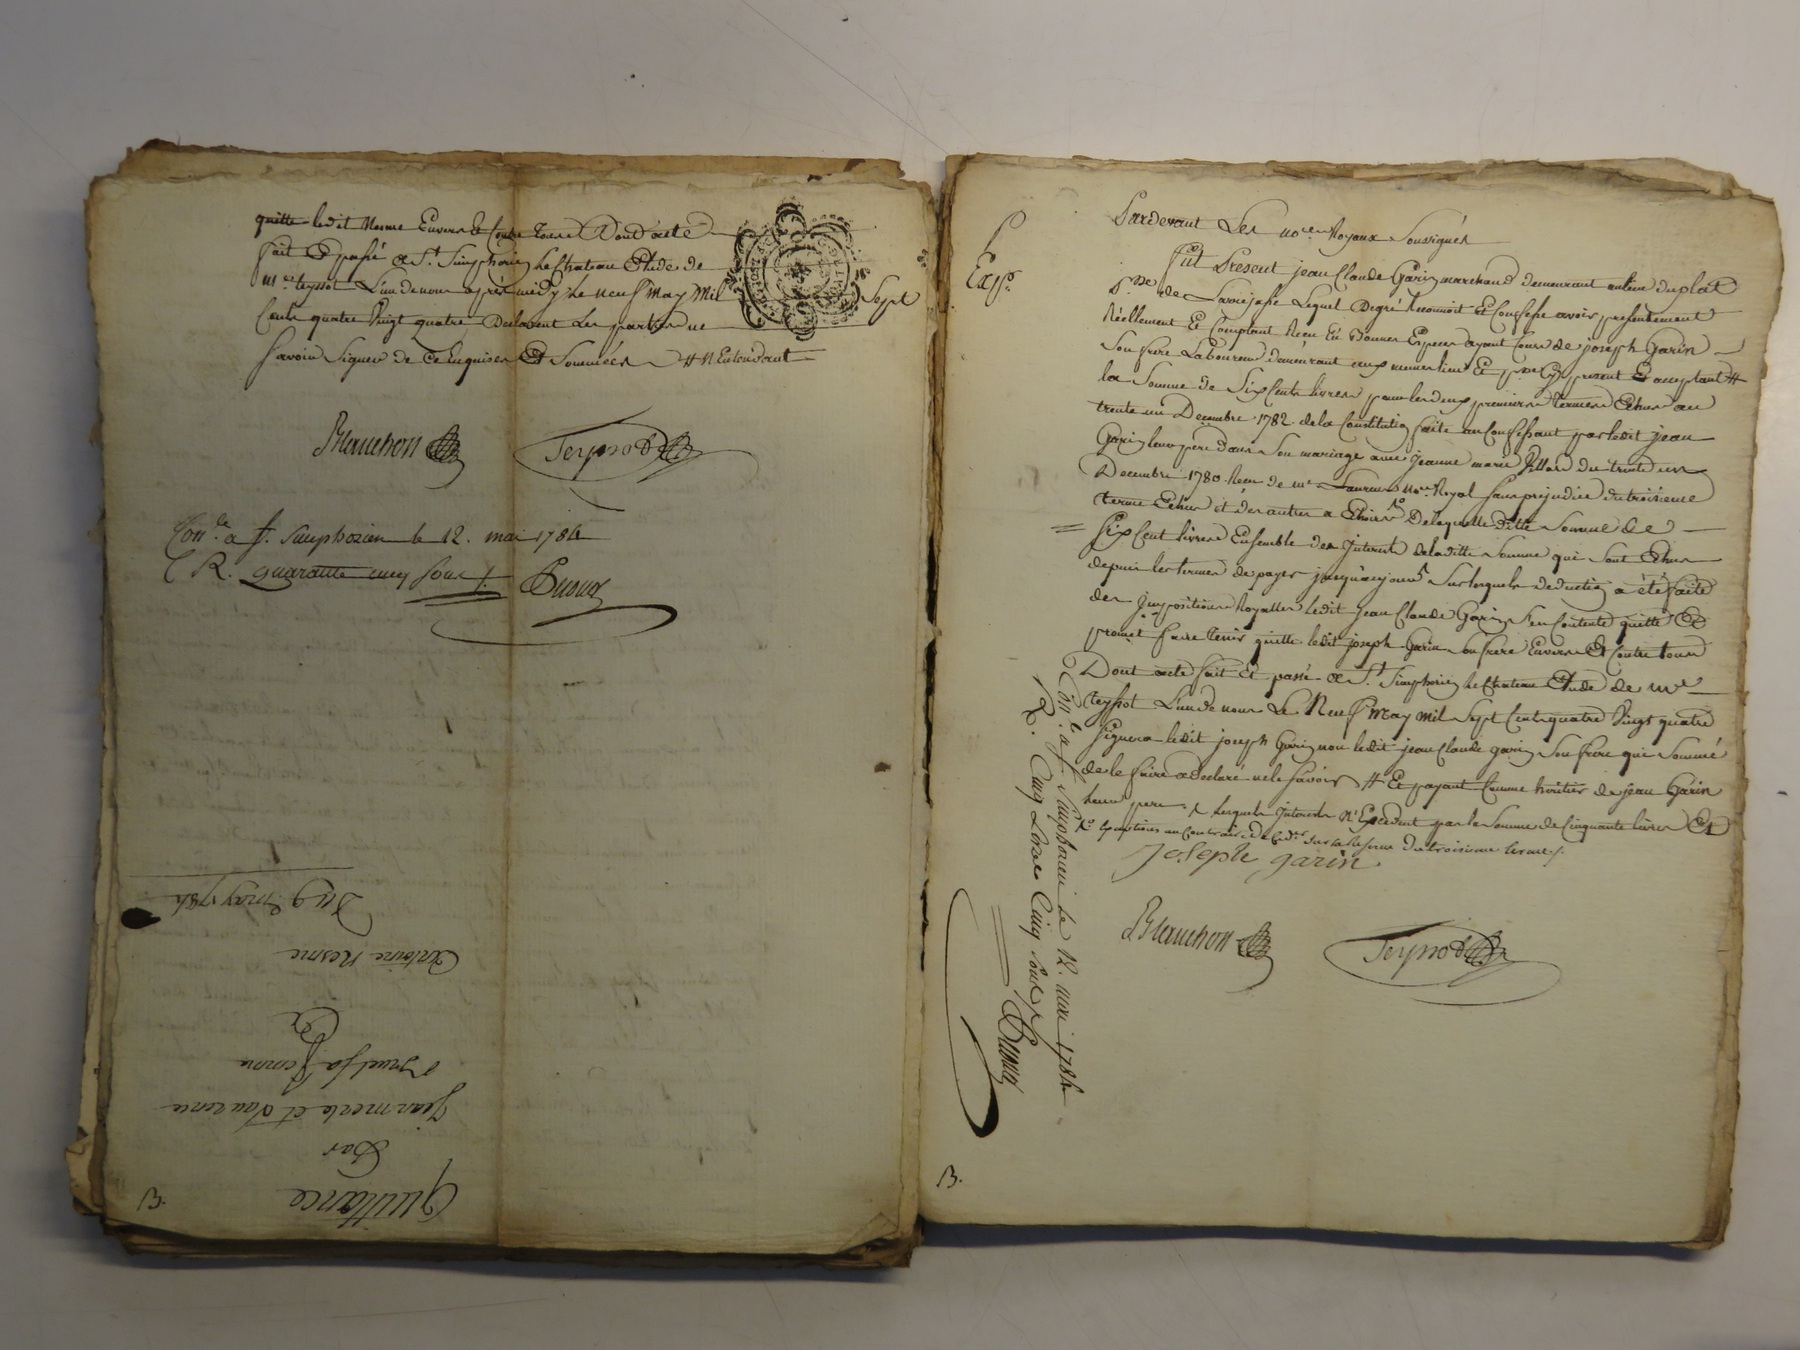 quitte ledit Nesme Envers Et Contre tous Dont acte
fait Et passé a St. Simphorien le Chateau Etude de
me. teyssot L'un de nous après midy le neuf May Mil Sept
Cents quatre Vingt quatre Declarent les parties ne
Savoir Signer de Ce Enquises Et Sommées
Blanchon Teyssot
Con.lé a St. Simphorien le 12. mai 1784
R. quarante cinq sous
Du 9. may 1784
Antoine Nesme
Jean merle et Laurence
Par
Quittance
B.
Exp.
Pardevant Les no.res Royaux Soussignés
fut Present jean Claude Garin marchand demeurant au lieu du plat
p.sse de Lequel Degré Reconnoit Et Confesse avoir presentement
Réellement Et Comptant Reçu En Bonnes Especes ayant Cours de joseph Garin
Son frere Laboureur demeurant aux memes lieu Et p.sse Cy present Et acceptant #
la Somme de Six Cents livres pour les deux premiers termes Echus au
trente un Decembre 1782. de la Constitution faite au Confessant par ledit jean
Garin leur pere dans Son mariage avec jeanne marie du trente un
Decembre 1780. Reçu de me. Laurent no.re Royal Sans prejudice du troisieme
terme Echus et des autres a Echoir De laquelle ditte Somme de
Six Cent livres Ensemble des Interets de laditte Somme qui Sont Echus
depuis les termes de payer jusqu'a ce jour Sur lesquels deduction a été faite
des Impositions Royalles ledit jean Claude Garin S'en Contente quitte Et
promet faire tenir quitte ledit joseph Garin Son frere Envers Et Contre tous
Dont acte fait Et passé a St. Simphorien le Chateau Etude de me.
teyssot L'un de nous Le Neuf May mil Sept Cents quatre Vingt quatre
Signera ledit joseph Garin non ledit jean Claude garin Son frere qui Sommé
de le faire a declaré ne le savoir # Et payant Comme heritier de jean Garin
leur pere. lesquels Interets N'Excedent pas la Somme de Cinquante livres Et
du troisieme terme
Joseph garin
Blanchon Teyssot
Con.lé a St. Simphorien le 12. mai 1784
R. Cinq livres Cinq sous
B.